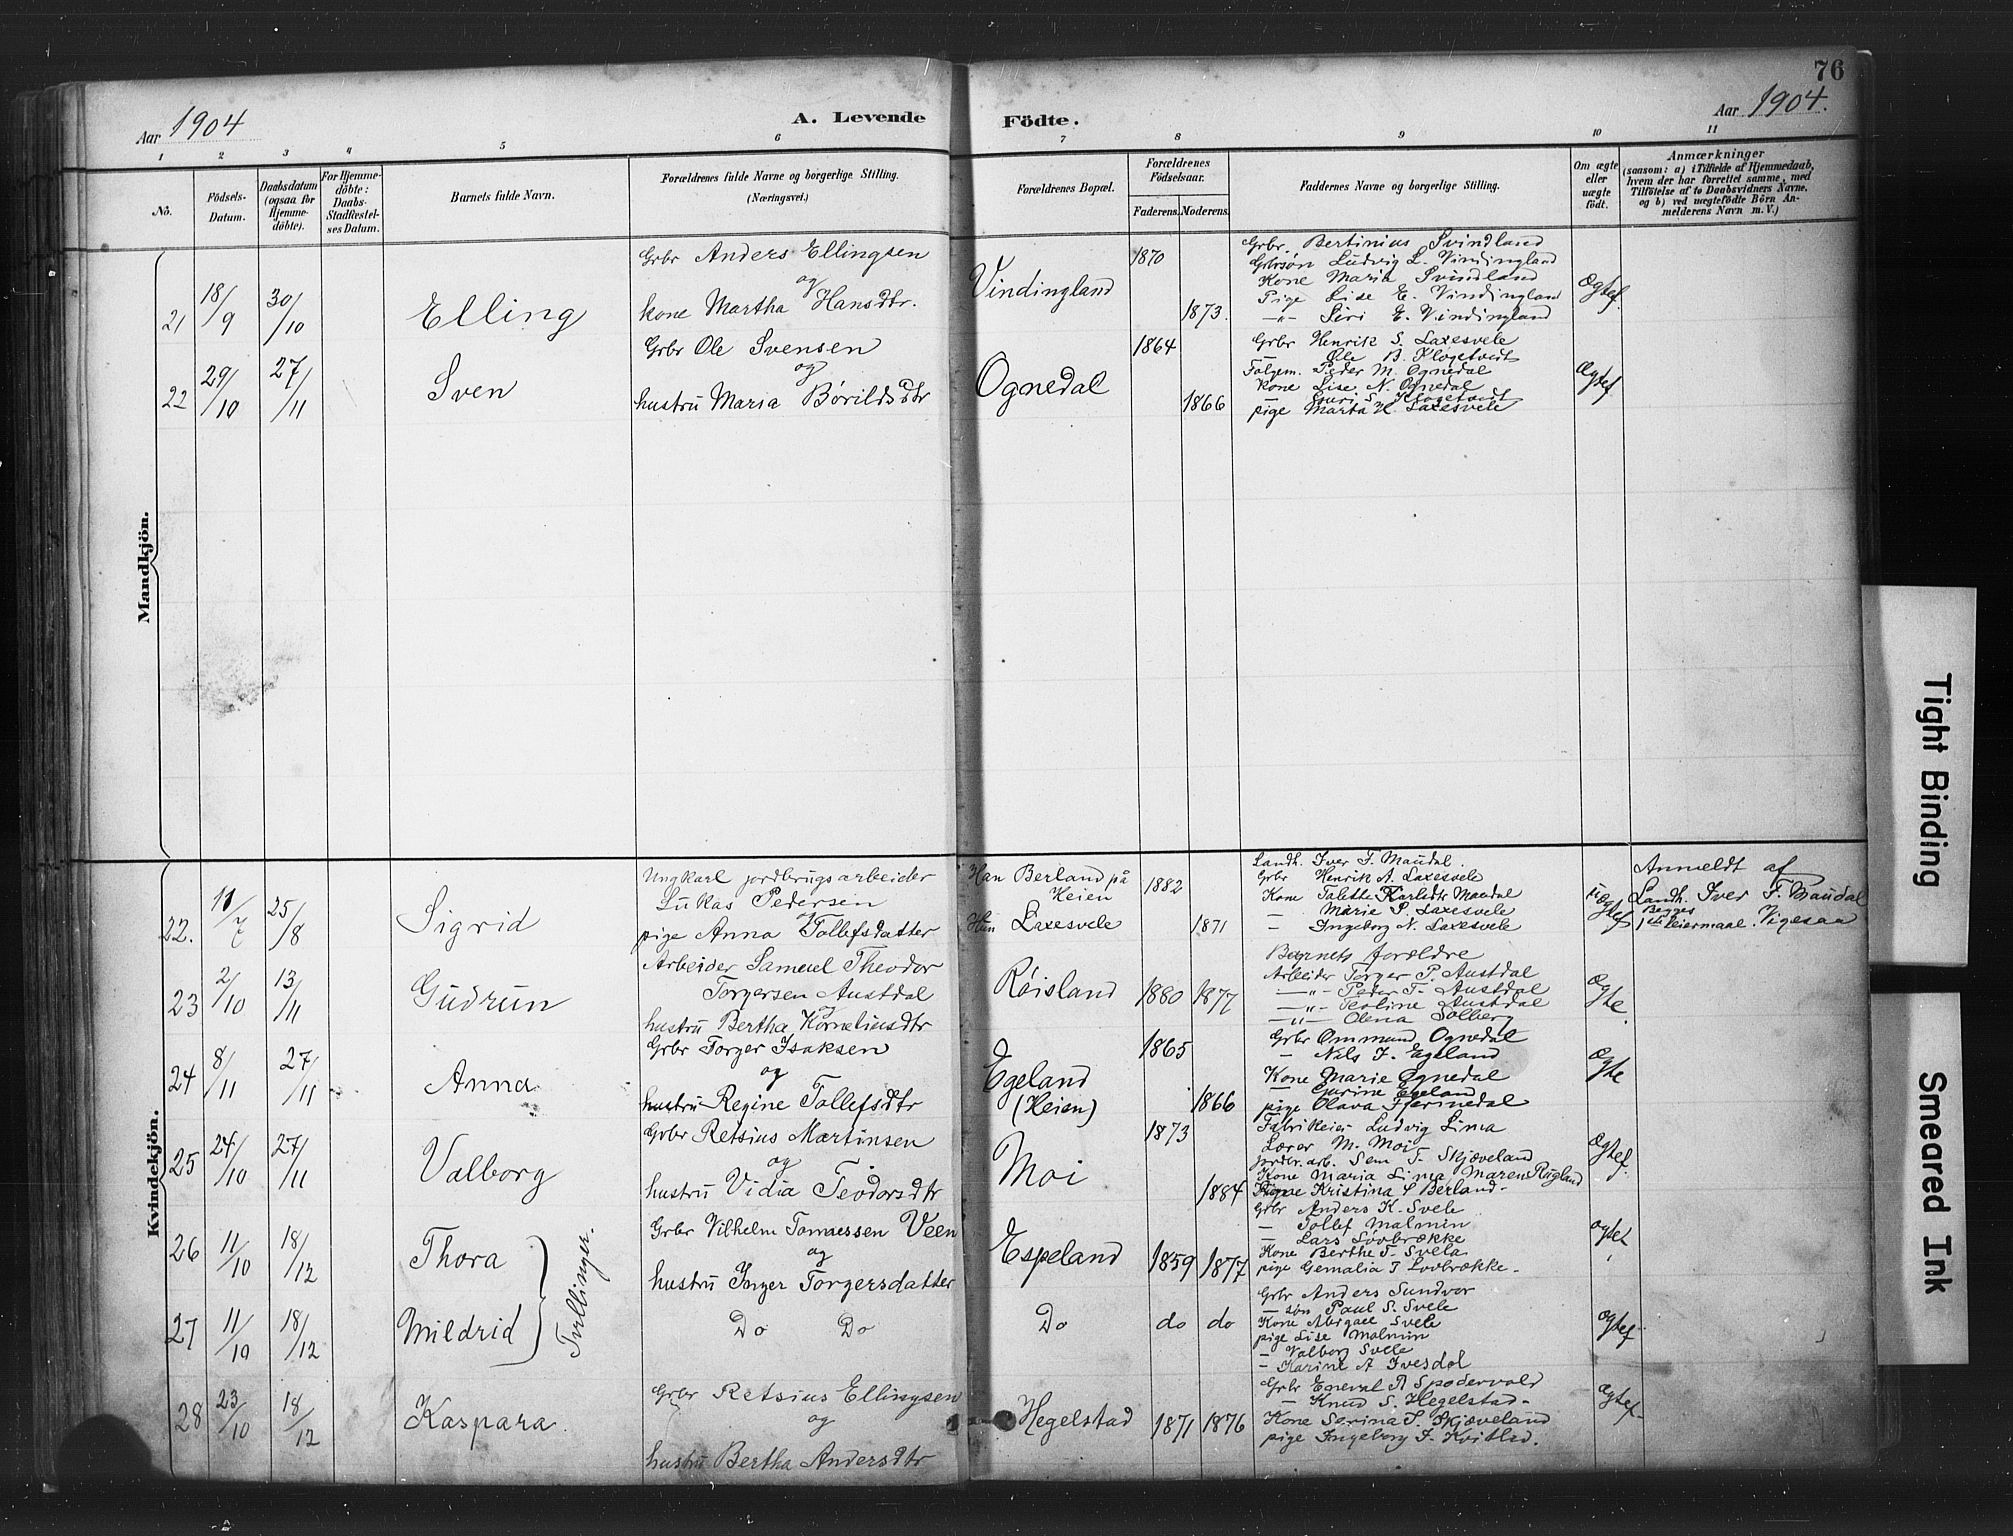 76
Aar 1904
A. Levende
Födte.
Aar 1904.
1 2 3 4 5 6 7 8 9 10 11
No.
Födsels-Datum.
Daabsdatum (ogsaa for Hjemme-döbte).
For Hjemme-döbte: Daabs-Stadfæstel-ses Datum.
Barnets fulde Navn.
Forældrenes fulde Navne og borgerlige Stilling.
(Næringsvei.)
Forældrenes Bopæl.
Forældrenes Födselsaar.
Faderens.
Moderens.
Faddernes Navne og borgerlige Stilling.
Om ægte eller uægte födt.
Anmærkninger
(saasom: a) i Tilfælde af Hjemmedaab,
hvem der har forrettet samme, med
Tilföielse af to Daabsvidners Navne,
og b) ved uægtefödte Börn An-
melderens Navn m. V.)
Mandkjön.
21
18/9
30/10
Elling
Grbr Anders Ellingsen
og
kone Martha Hansdtr.
Vindingland
1870
1873.
Grbr. Bertinius Svindland
Grbrsøn Ludvig L. Vindingland
Kone Maria Svindland
Pige Lise E. Vindingland
-"- Siri E. Vindingland
Ægtef.
22
29/10
27/11
Sven
Grbr Ole Svensen
og
hustru Maria Børildsdtr
Ognedal
1864
1866
Grbr Henrik S. Laxesvele
— Ole B. Klogetvedt
Følgem. Peder M. Ognedal
Kone Lise N. Ognedal
— Guri S. Klogetvedt
pige Marta H. Laxesvele
Ægtef
Kvindekjön.
22.
11/7
25/8
Sigrid
Ungkarl jordbrugsarbeider
Lukas Pedersen
og
pige Anna Tollefsdatter
Han Berland på
Heien
Hun Laxesvele
1882
1871
Landh. Iver T. Maudal.
Grbr Henrik A. Laxesvele
Kone Talette Karlsdtr Maudal
— Marie S. Laxesvele
— Ingeborg N. Laxesvele
uægtef
Anmeldt af
Landh. Iver T. Maudal
Begges
1ste Leiermaal. Vigesaa
23
2/10
13/11
Gudrun
Arbeider Samuel Theodor
Torgersen Austdal
og
hustru Bertha Korneliusdtr
Røisland
1880
1877
Barnets forældre
Arbeider Torger P. Austdal
—"- Peder T. Austdal
—"- Teoline Austdal
—"— Olena Solberg
Ægte.
24
8/11
27/11
Anna
Grbr Torger Isaksen
og
hustru Regine Tollefsdtr
Egeland
(Heien)
1865
1866
Grbr Ommund Ognedal
— Nils J. Egeland
Kone Marie Ognedal
— Gurine Egeland
pige Olava Fjermedal
ægte
25
24/10
27/11
Valborg
Grbr Retsius Martinsen
og
hustru Vidia Teodorsdtr
Moi
1873
1884
Fabrikeier Ludvig Lima
Lærer M. Moi
jordbr. arb. Sem T. Skjæveland
Kone Maria Lima, Maren Rugland
Pige Kristina S Berland-
Ægtef.
26
11/10
18/12
Thora
Tvillinger.
Grbr Vilhelm Tomassen Veen
og
hustru Inger Torgersdatter
Espeland
1859
1877
Grbr Anders K. Svele
— Tollef Malmin
— Lars Lovbrække
Kone Berthe T. Svela
pige Gemalia T Lovbrække-
ægtef
27
11/10
18/12
Mildrid
Do Do
Do
do
do
Grbr Anders Sundvor
— søn Paul S. Svele
Kone Abigael Svele
pige Lise Malmin
— Valborg Svele
— Karine A Ivesdal
ægtef-
28
23/10
18/12
Kaspara
Grbr Retsius Ellingsen
og
hustru Bertha Andersdtr
Hegelstad
1871
1876
Grbr Eneval A Spødervold
— Knud S. Hegelstad-
Kone Serina S. Skjæveland
pige Ingeborg J. Kvitlad.
Ægtef-
Tight Binding
Smeared Ink